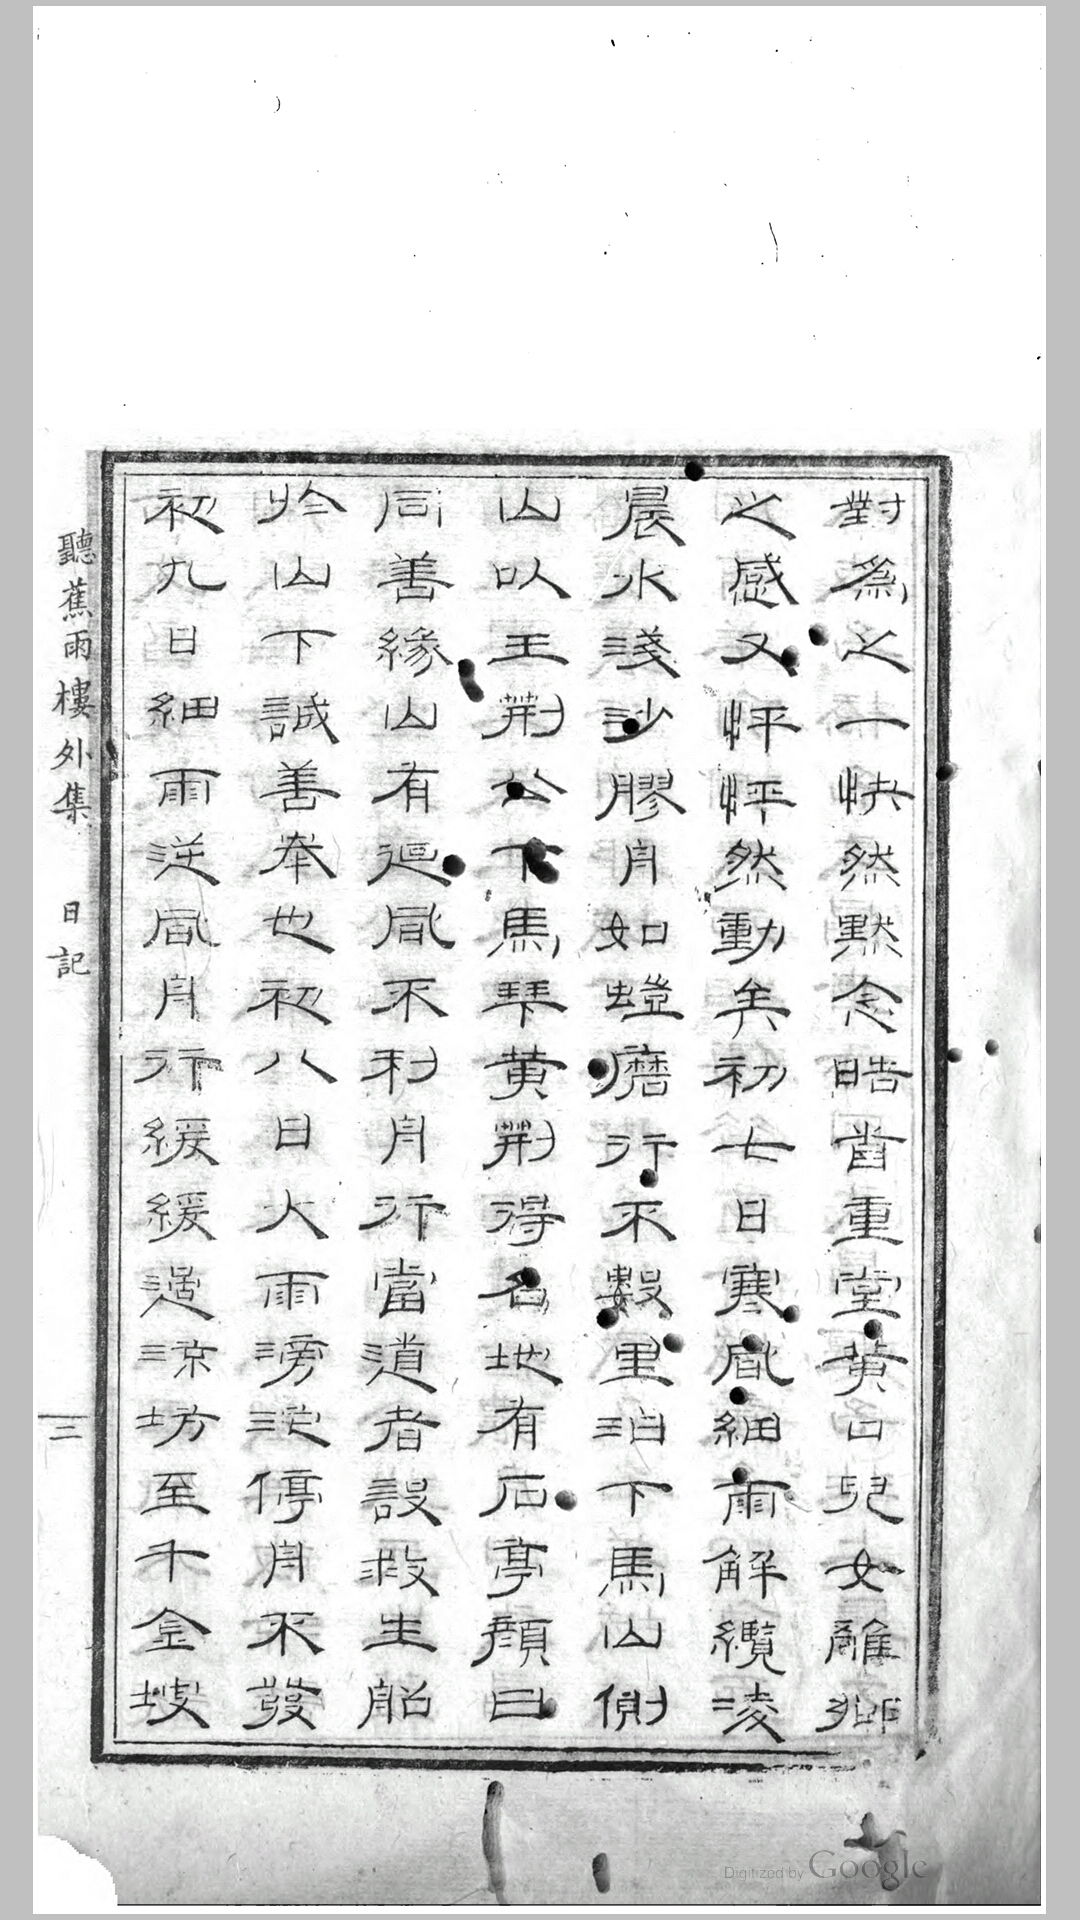 對為之一快然默念皓首重堂黃口兒女離鄉
之感又怦怦然動矣初七日寒風細雨解纜淩
晨水淺沙膠舟如螘磨行不數里泊下馬山側
山以王荊公下馬琴黃荊得名地有石亭顏曰
同善緣山有迴風不利舟行當道者設救生船
於山下誠善舉也初八日大雨滂沱停舟不發
初九日細雨逆風舟行緩緩過涼坊至千金坡
聽蕉雨樓外集 日記 三
Digitized by Google